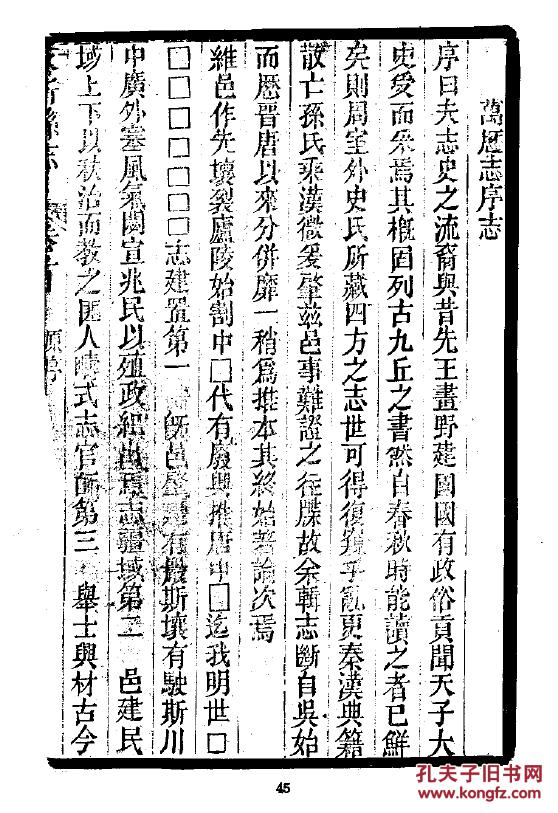 萬厯志序志
序曰夫志史之流裔與昔先王畫野建國國有政俗貢聞天子大
史受而采焉其槪固列古九丘之書然自春秋時能讀之者已鮮
矣則周室外史氏所藏四方之志世可得復窺乎亂更秦漢典籍
散亡孫氏乘漢微爰肇茲邑事難證之往牒故余輯志斷自吳始
而厯晉唐以來分併靡一稍爲推本其終始著論次焉
維邑作先壞裂廬陵始割中□代有廢興推唐中□迄我明世□
□□□□□□□志建置第一 旣邑肇建有殷斯壤有駛斯川
中廣外塞風氣閼宣兆民以殖政經出焉志疆域第二 邑建民
域上下以秩治而教之匪人疇式志官師第三 舉士與材古今
志
序
45
孔夫子旧书网
www.kongfz.com